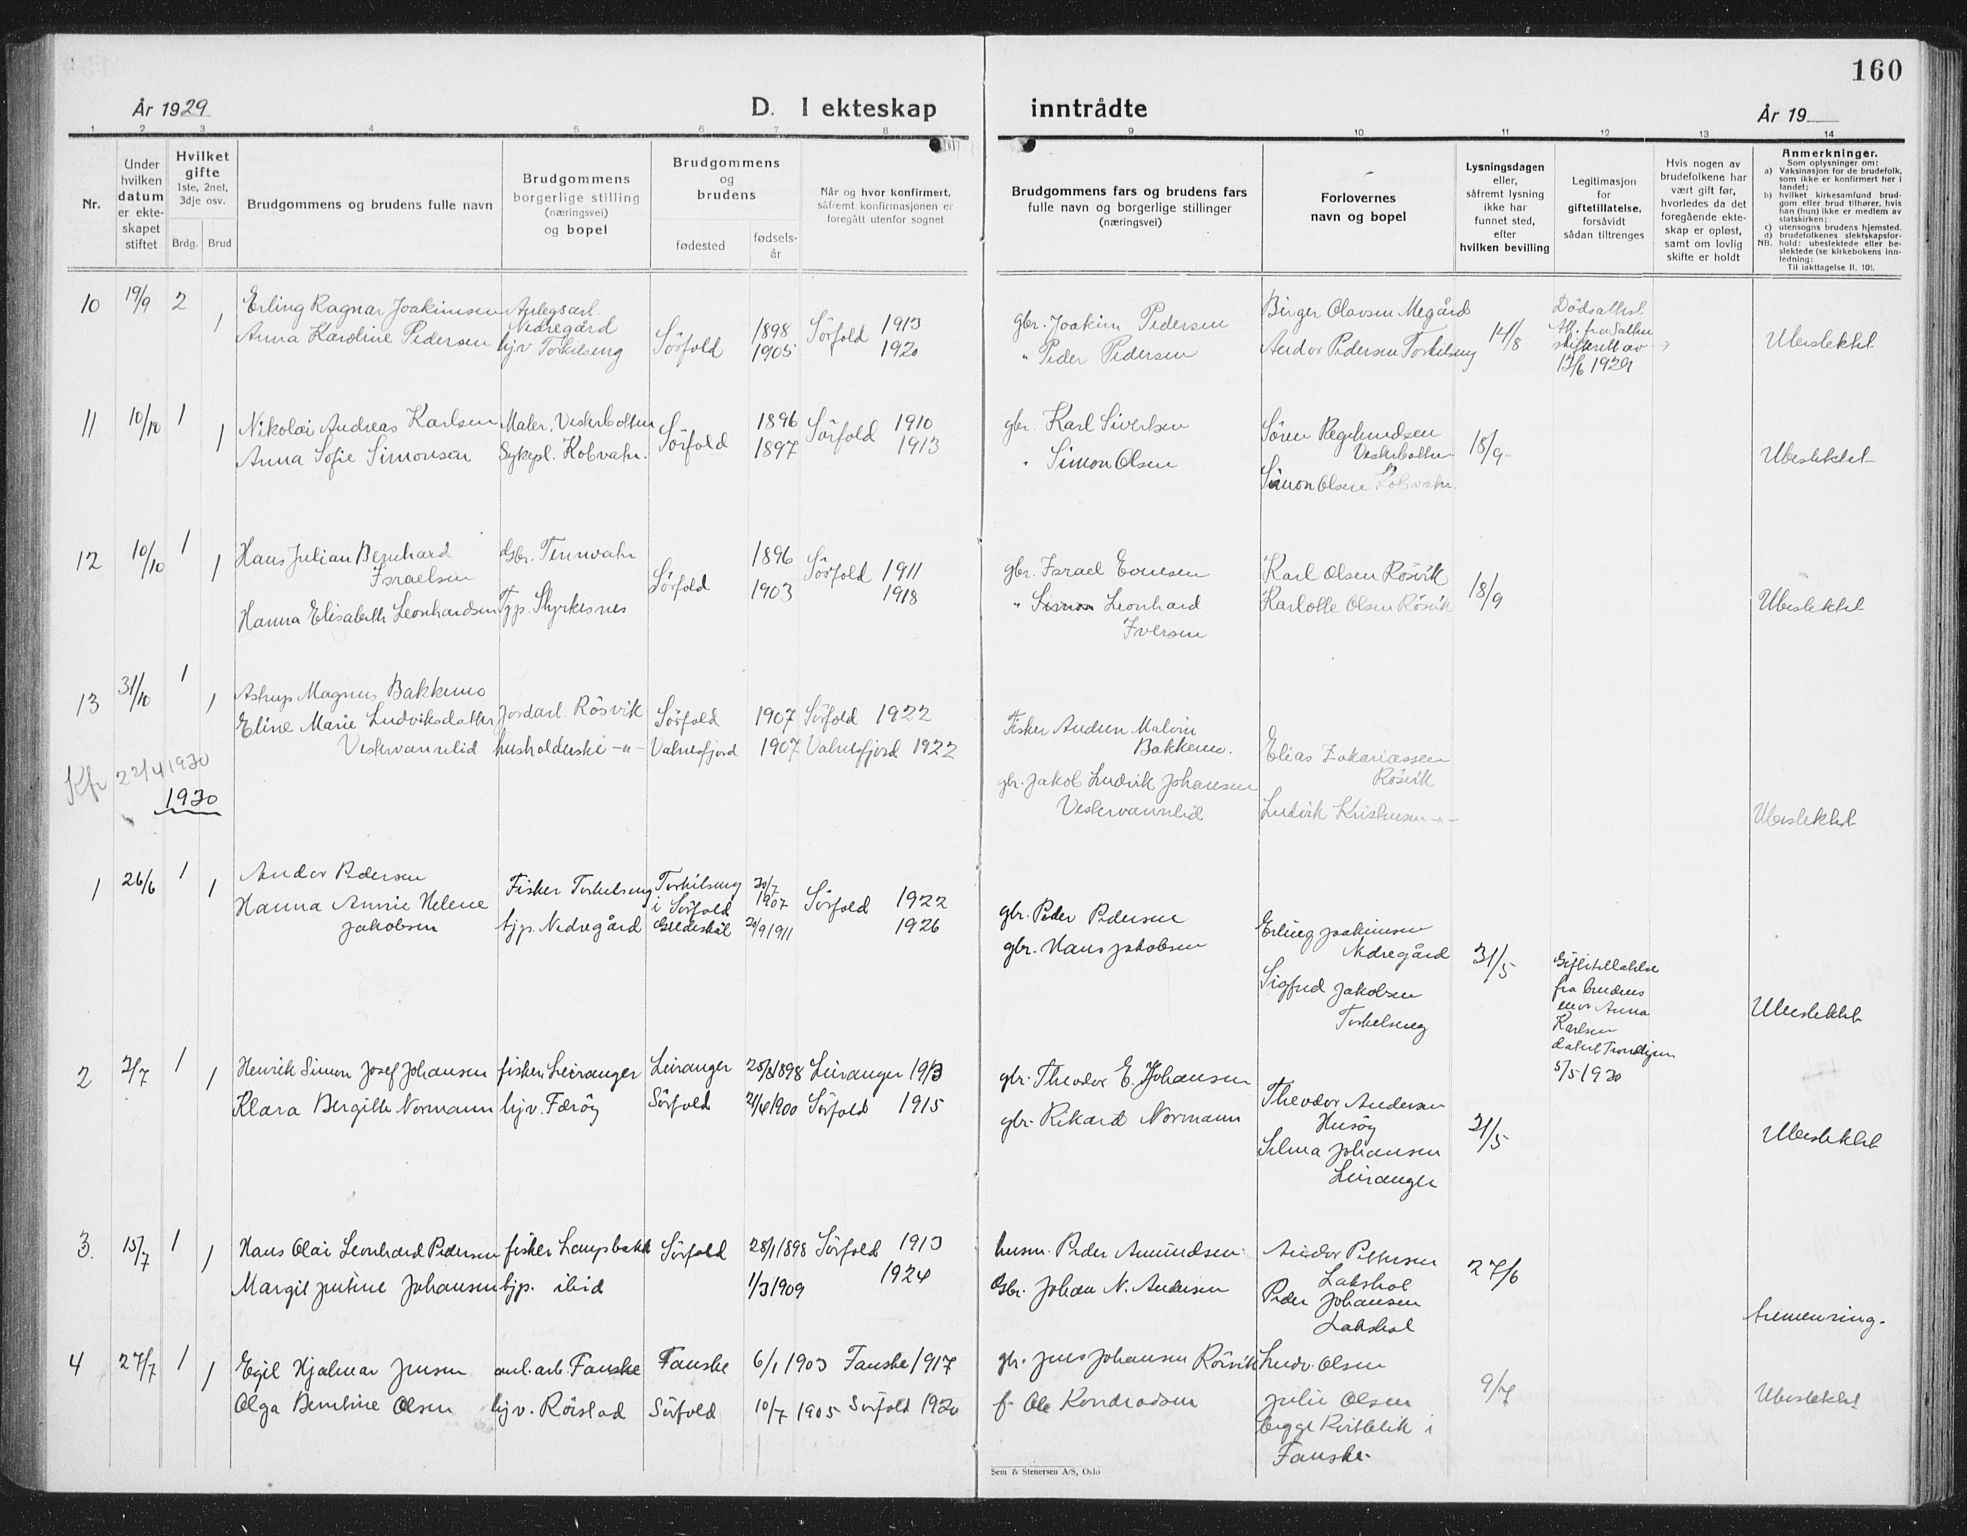 160
År 1929
D. I ekteskap
inntrådte
År 19
1 2 3 4 5 6 7 8 9 10 11 12 13 14
Nr.
Under
hvilken
datum
er ekte-
skapet
stiftet
Hvilket
gifte
1ste, 2net,
3dje osv.
Brdg. Brud
Brudgommens og brudens fulle navn
Brudgommens
borgerlige stilling
(næringsvei)
og bopel
Brudgommens
og
brudens
fødested
fødsels-
år
Når og hvor konfirmert,
såfremt konfirmasjonen er
foregått utenfor sognet
Brudgommens fars og brudens fars
fulle navn og borgerlige stillinger
(næringsvei)
Forlovernes
navn og bopel
Lysningsdagen
eller,
såfremt lysning
ikke har
funnet sted,
efter
hvilken bevilling
Legitimasjon
for
giftetillatelse,
forsåvidt
sådan tiltrenges
Hvis nogen av
brudefolkene har
vært gift før,
hvorledes da det
foregående ekte-
skap er opløst,
samt om lovlig
skifte er holdt
Anmerkninger.
Som oplysninger om:
a) Vaksinasjon for de brudefolk,
som ikke er konfirmert her i
landet;
b) hvilket kirkesamfund brud-
gom eller brud tilhører, hvis
han (hun) ikke er medlem av
statskirken;
c) utensogns brudens hjemsted.
d) brudefolkenes slektskapsfor-
NB. hold: ubeslektede eller be-
slektede (se kirkebokens inn-
ledning:
Til iakttagelse II. 10).
10 19/9 2 Erling Ragnar Joakimsen Anlegsarb. Nedregård Sörfold 1898 Sörfold 1913
1 Anna Karoline Pedersen hjv Torkilseng 1905 1920
gbr. Joakim Pedersen Birger Olavsen Megård 14/8 Dødsattest
" Peder Pedersen Andor Pedersen Torkilseng
skifterett av
13/6 1929
Ubeslektet
11 10/10 1 Nikolai Andreas Karlsen Maler, Vesterbotten Sörfold 1896 Sörfold 1910
1 Anna Sofie Simonsen Sykepl. Kobvatn. 1897 1913
gbr. Karl Sivertsen Sören Regelundsen
Vesterbotten 18/9
" Simon Olsen Simon Olsen Kobvatn.
Ubeslektet
12 10/10 1 Hans Julian Bernhard
Israelsen Gbr. Tennvatn Sörfold 1896 Sörfold 1911
1 Hanna Elisabeth Leonhardsen Tjp. Styrkesnes 1903 1918
gbr. Israel Evensen Karl Olsen Rösvik 18/9
" Simon Leonhard
Iversen Karlotte Olsen Rösvik
Ubeslektet
13 31/10 1 Astrup Magnus Bakkemo Jordarb. Rösvik Sörfold 1907 Sörfold 1922
1 Eline Marie Ludviksdatter
Vestervannlid husholderske -"- Valnesfjord 1907 Valnesfjord 1922
Fisker Andren Malvin
Bakkemo. Elias Zakariassen
Rösvik
gbr. Jakob Ludvik Johansen
Vestervannlid Ludvik Kristensen -"-
Ubeslektet
Kfr 22/4 1930
1930
1 26/6 1 Andor Pedersen Fisker Torkelseng Torkilseng
i Sörfold 30/7
1907 Sörfold 1922
1 Hanna Annie Helene
Jakobsen tjp. Nedregård Gildeskål 20/9 1911 1926
gbr. Peder Pedersen Erling Joakimsen
Nedregård 31/5
gbr. Hans Jakobsen Sigfred Jakobsen
Torkelseng
Giftetillatelse
fra brudens
mor Anna
Karlsen
datert Trondhjem
5/5 1930
Ubeslektet
2 2/7 1 Henrik Simon Josef Johansen fisker, Leiranger Leiranger 25/8 1898 Leiranger 1913
1 Klara Bergitte Normann hjv. Færöy Sörfold 21/4 1900 Sörfold 1915
gbr. Theodor E. Johansen Theodor Andersen
Husöy 31/5
gbr. Rikard Normann Selma Johansen
Leiranger
Ubeslektet
3. 15/7 1 Hans Olai Leonhard Pedersen fisker Lampbakk Sörfold 28/1 1898 Sörfold 1913
1 Margit Justine Johansen tjp. ibid 1/3 1909 1924
husm. Peder Amundsen Andor Pettersen
Lakshol 27/6
Gbr. Johan N. Andersen Peder Johansen
Lakshol
tremenning.
4 27/7 1 Egil Hjalmar Jensen anl.arb. Fauske Fauske 6/1 1903 Fauske 1917
1 Olga Bentine Olsen hjv. Rörstad Sörfold 10/7 1905 Sörfold 1920
gbr. Jens Johansen Rösvik Ludv. Olsen 9/7
f. Ole Kondradsen Julie Olsen
begge Kvitblik i
Fauske
Ubeslektet
Sem & Stenersen A/S, Oslo